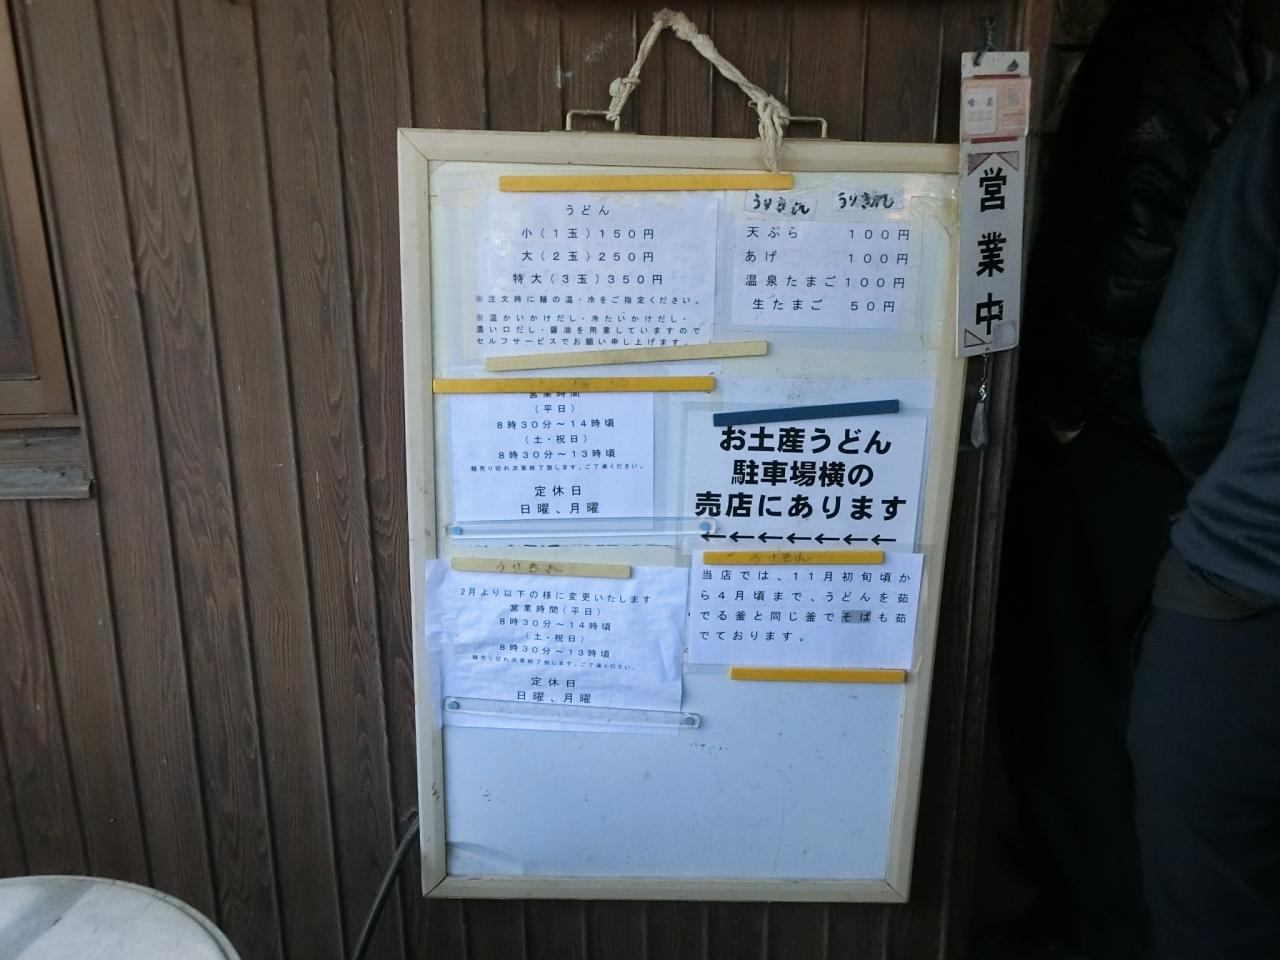 うどん
小(1玉)150円
大(2玉)250円
特大(3玉)350円
※注文時に麺の温・冷をご指定ください。
※温かいかけだし・冷たいかけだし・
濃い口だし・醤油を用意していますので
セルフサービスでお願い申し上げます。
うりきれ うりきれ
天ぷら 100円
あげ 100円
温泉たまご100円
生たまご 50円
営業中
営業時間
(平日)
8時30分~14時頃
(土・祝日)
8時30分~13時頃
麺売り切れ次第終了致します。ご了承ください。
定休日
日曜、月曜
お土産うどん
駐車場横の
売店にあります
←←←←←←←
うりきれ
2月より以下の様に変更いたします
営業時間(平日)
8時30分~14時頃
(土・祝日)
8時30分~13時頃
麺売り切れ次第終了致します。ご了承ください。
定休日
日曜、月曜
うりきれ
当店では、11月初旬頃か
ら4月頃まで、うどんを茹
でる釜と同じ釜でそばも茹
でております。